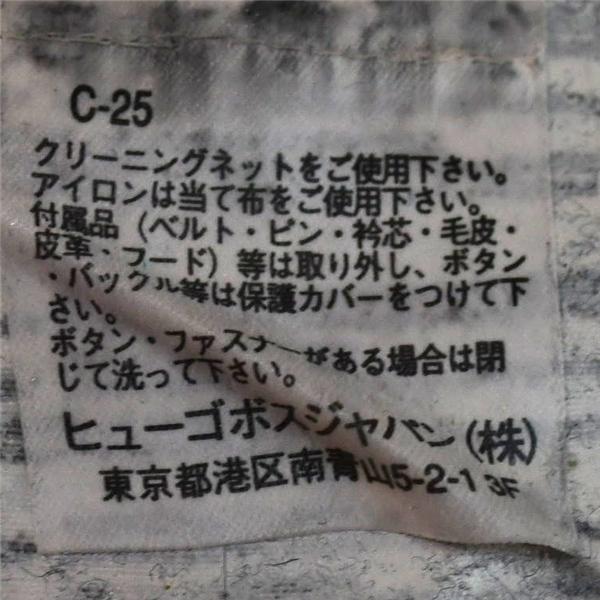 C-25
クリーニングネットをご使用下さい。
アイロンは当て布をご使用下さい。
付属品（ベルト・ピン・衿芯・毛皮・
皮革・フード）等は取り外し、ボタン
・バックル等は保護カバーをつけて下
さい。
ボタン・ファスナーがある場合は閉
じて洗って下さい。
ヒューゴボスジャパン(株)
東京都港区南青山5-2-1 3F